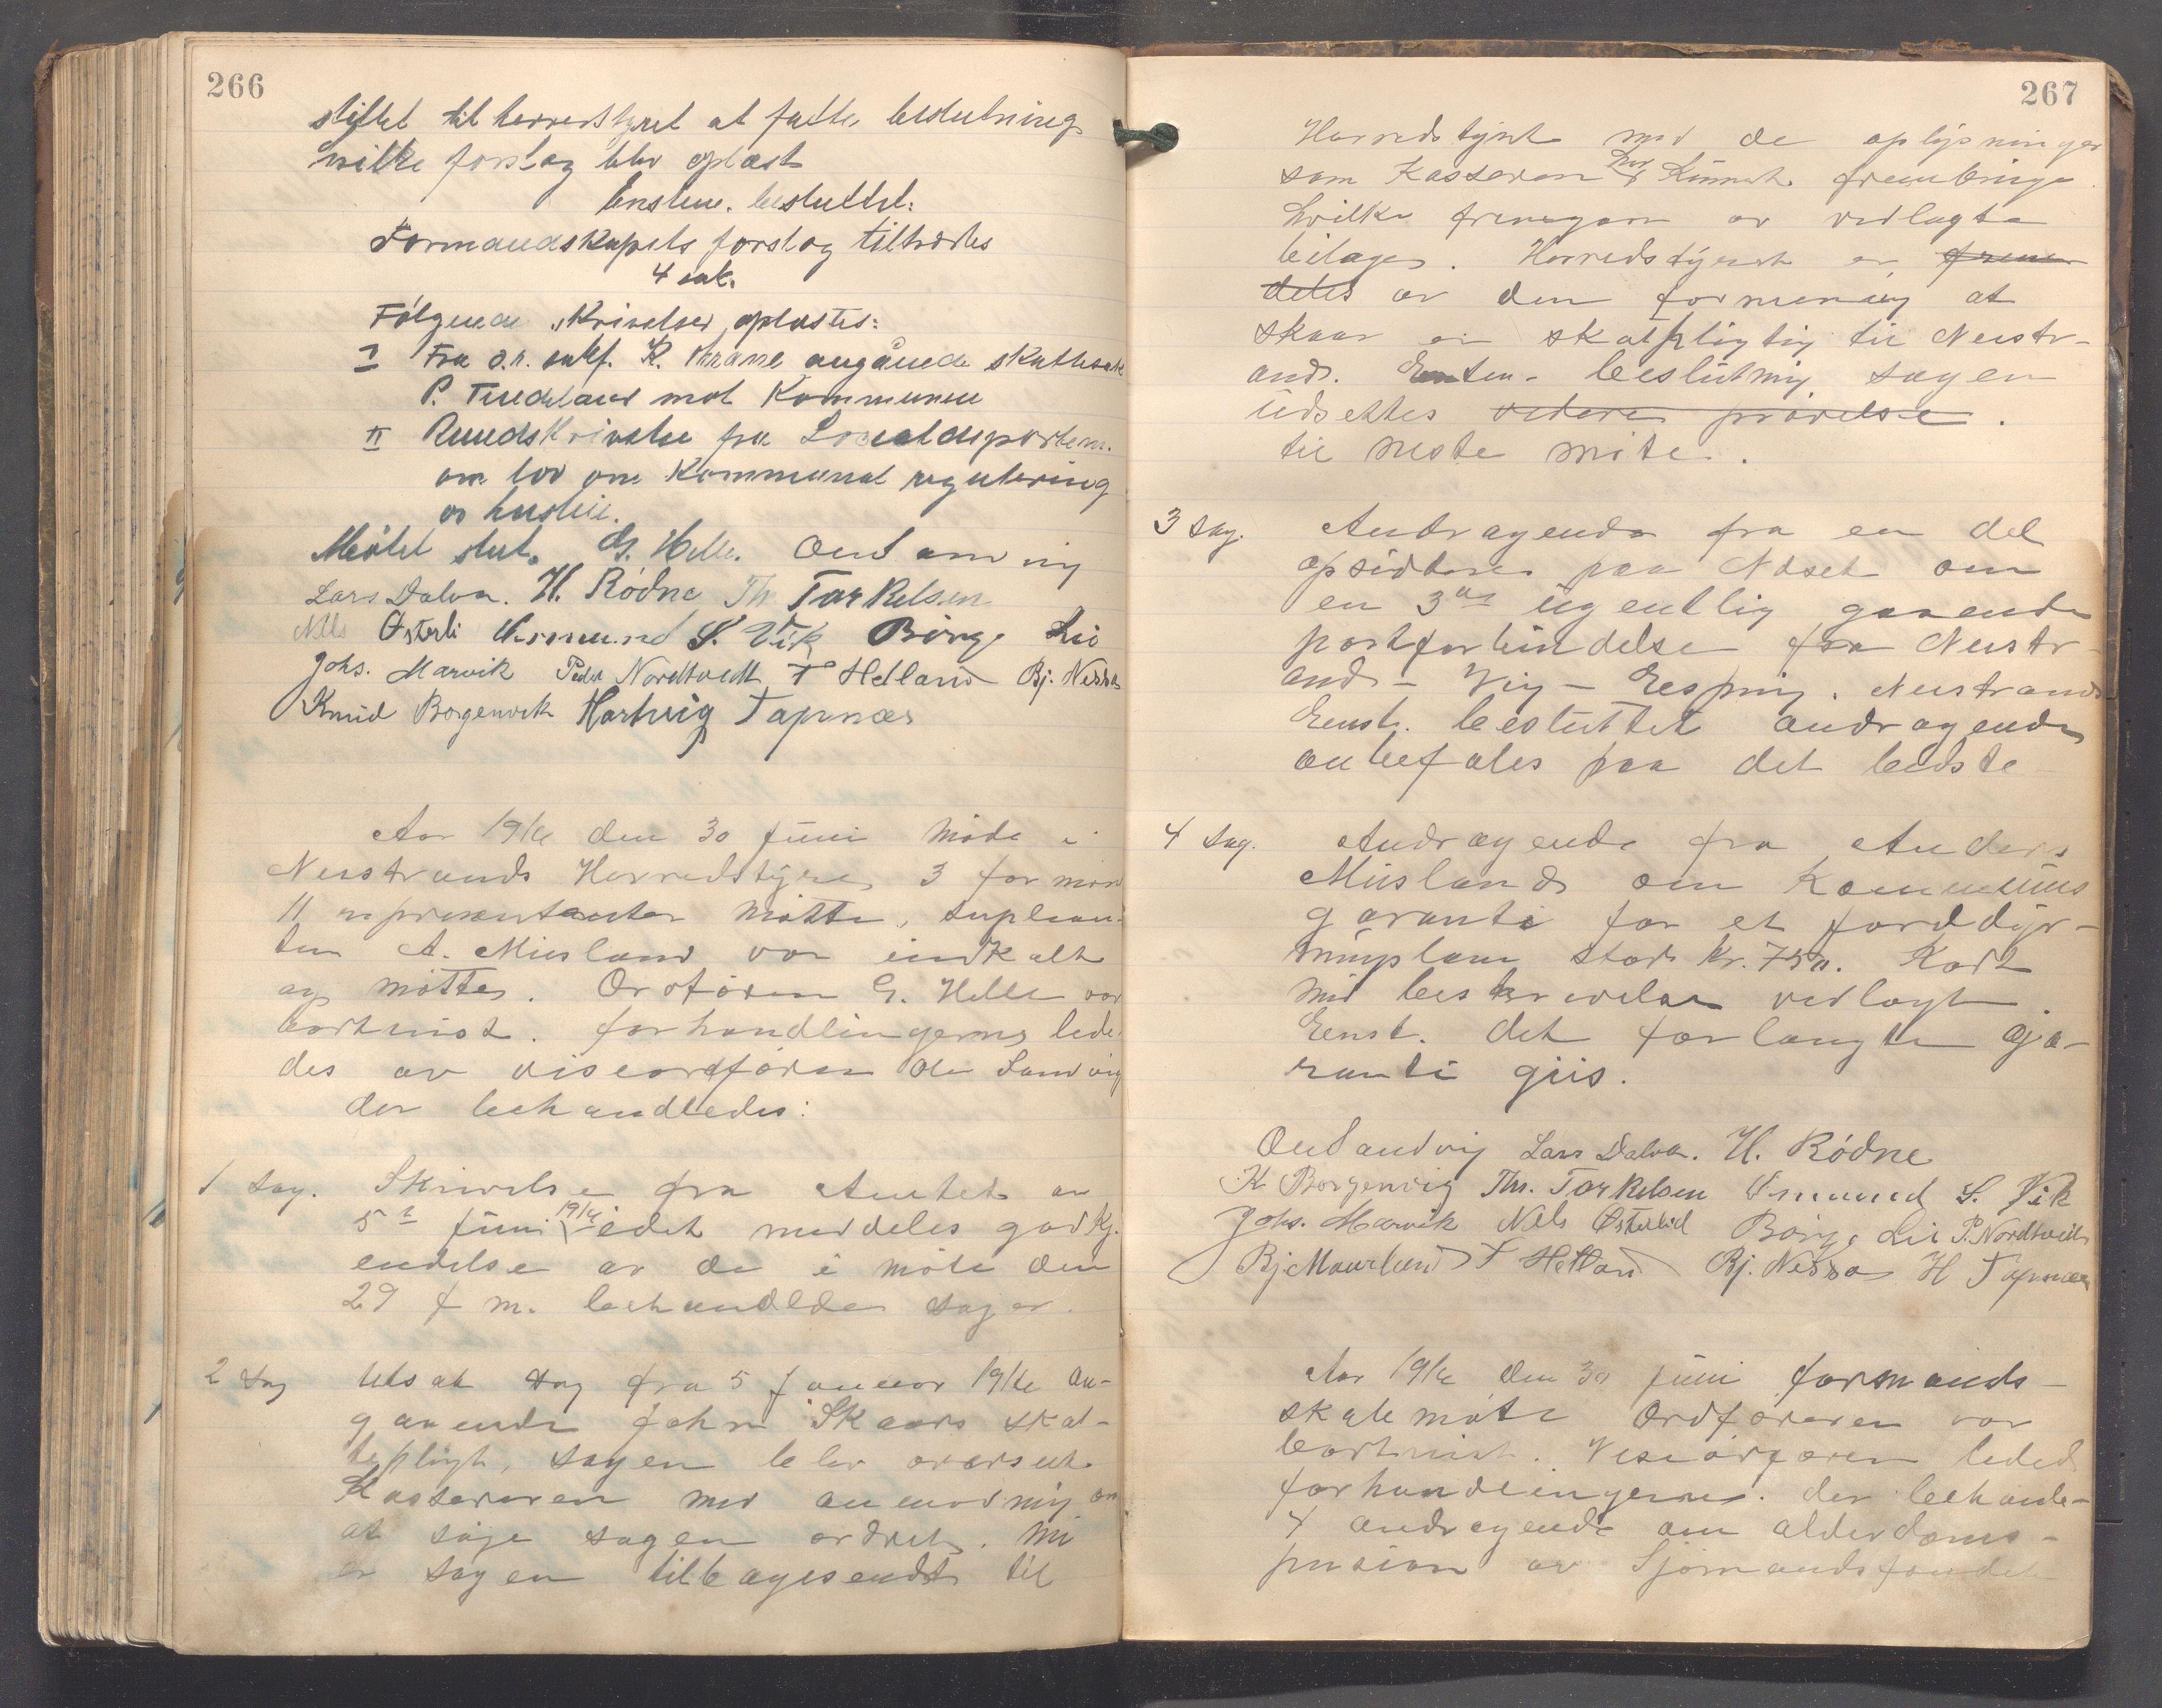 266
stillet til herredstyret at fatte beslutning
vilke forslag blev oplæst
Enstem. besluttet:
Formandskapets forslag tiltrædes
4 sak.
Følgende skrivelser oplæstes:
I Fra o.r. sakf. K. Krane angående skattesak
P. Tindeland mot Kommunen
II Rundskrivelse fra Socialdepartem.
om lov om Kommunal regulering
av husleie.
Møtet slut. G. Helle. Ole Sandvig
Lars Dalva. H. Rödne Th Torkelsen
Nils Østerli Osmund S. Vik Börge Lie
Johs. Marvik Peder Nordtvedt T Helland Bj. Nessa
Knud Borgenvik Hartvig Tapnæs
Aar 1916 den 30 Juni Møde i
Nerstrands Herredstyre, 3 formænd
11 representanter møtte, suplean-
ten A. Miusland var indkalt
og møtte. Ordføren G. Helle var
bortreist. forhandlingerne lede-
des av viseordføren Ole Sandvig
der behandledes:
1 Sag. Skrivelse fra Amtet av
5te Juni 1916 idet meddeles godkj-
endelse av de i møte den
29 f m. behandlede sager.
2 Sag Utsat Sag fra 5 Januar 1916 an-
gaaende John Skaars skat-
tepligt, sagen blev oversent
Kassereren med anmodning om
at søge sagen ordnet. Nu
er sagen tilbagesendt til
267
Herredstyret med de oplysninger
som Kasseren har kunnet frembringe
hvilke fremgaar av vedlagte
bilager. Herredstyret er frem
deles av den formening at
Skaar er skatpligtig til Nerstr-
and. Ensten. beslutning sagen
udsettes videre prøvelse.
til neste møte.
3 Sag. Andragende fra en del
opsiddere paa Næset om
en 3de ugentlig gaaende
postforbindelse fra Nerstr-
and - Vig - Espevig. Nerstrand
Enst. besluttet andragende
anbefales paa det bedste
4 Sag. Andragende fra Anders
Miusland om Kommuns
garanti for et jorddyr-
ningslaan stort kr. 750. Kart
med beskrivelse vedlagt
Enst. det forlangte gja-
ranti giis.
Ole Sandvig Lars Dalva. H. Rödne
K Borgenvig Ths. Torkelsen Osmund S. Vik
Johs. Marvik Nils Østerlid Börge Lie P. Nordtvedt
Bj Mourland T Helland Bj. Nessa H Tapnæs
Aar 1916 den 30 juni formands-
skabsmøte Ordføreren var
bortreist. Viseorføren ledede
forhandlingerne. der behandl-
4 andragende om alderdoms-
pension av Sjømandsfondet